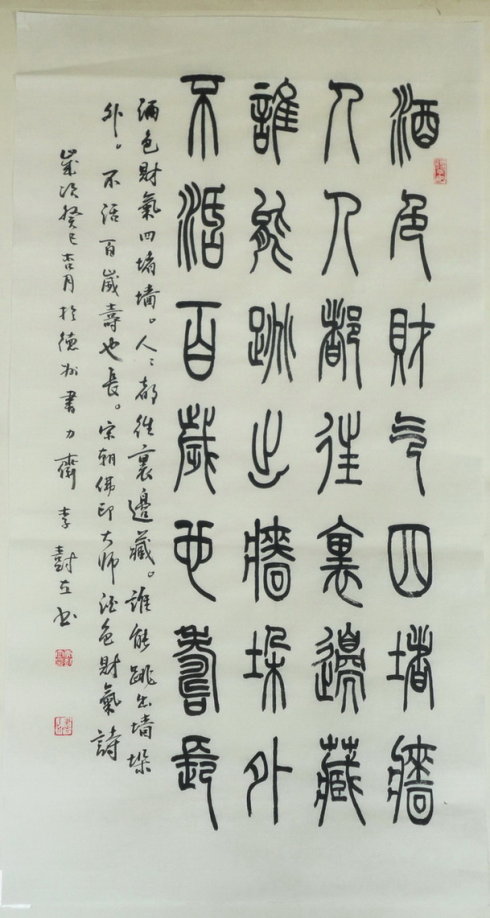 酒色財气四堵牆
人人都往裏邊藏
誰能跳出牆垛外
不活百歲也壽長
酒色財氣四堵墙。人〻都往裏邊藏。誰能跳出墙垛
外。不活百歲壽也長。宋朝佛印大师酒色財氣詩
歲次癸巳吉月於德州書刀齋李书